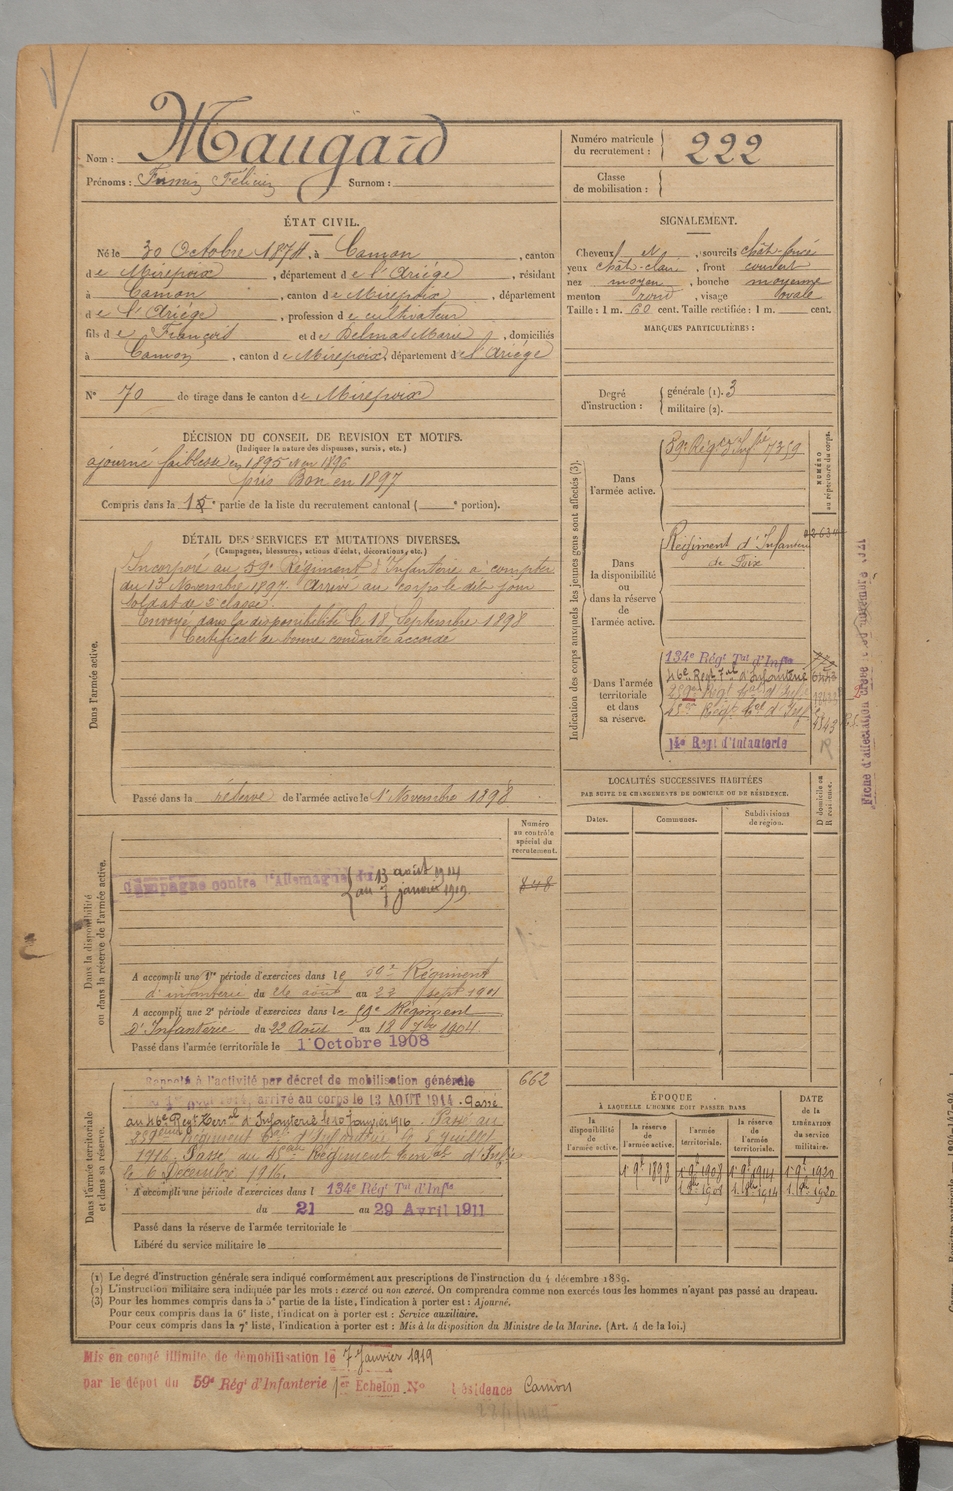 Nom : Maugard
Prénoms : Firmin Félicien Surnom :
Numéro matricule du recrutement : 222
Classe de mobilisation :
ÉTAT CIVIL.
Né le 30 Octobre 1874, à Camon, canton
de Mirepoix, département de l'Ariége, résidant
à Camon, canton de Mirepoix, département
de l'Ariége, profession de cultivateur
fils de François et de Delmas Marie, domiciliés
à Camon, canton de Mirepoix, département de l'Ariége
N° 70 de tirage dans le canton de Mirepoix
SIGNALEMENT.
Cheveux et, sourcils chât-foncé
yeux chât-clair, front couvert
nez moyen, bouche moyenne
menton rond, visage ovale
Taille : 1 m. 60 cent. Taille rectifiée : 1 m. cent.
MARQUES PARTICULIÈRES :
Degré d'instruction : générale (1). 3
militaire (2).
DÉCISION DU CONSEIL DE REVISION ET MOTIFS.
(Indiquer la nature des dispenses, sursis, etc.)
ajourné faiblesse en 1895 1896
pris Bon en 1897
Compris dans la partie de la liste du recrutement cantonal ( portion).
DÉTAIL DES SERVICES ET MUTATIONS DIVERSES.
(Campagnes, blessures, actions d'éclat, décorations, etc.)
Dans l'armée active.
Incorporé au 59e Régiment d'Infanterie à compter
du 13 Novembre 1897. Arrivé au corps le dit jour
soldat de 2e classe.
Envoyé dans la disponibilité le 18 Septembre 1898
Certificat de bonne conduite accordé
Passé dans la réserve de l'armée active le 1er Novembre 1898
Indication des corps auxquels les jeunes gens sont affectés (3).
NUMÉRO au répertoire du corps.
Dans l'armée active.
59e Régt d'Infie 7359
Dans la disponibilité ou dans la réserve de l'armée active.
Régiment d'Infanterie
de Foix
Dans l'armée territoriale et dans sa réserve.
134e Régt Tal d'Infie
46e Régt Tal d'Infanterie
14e Regt d'Infanterie
R
LOCALITÉS SUCCESSIVES HABITÉES
PAR SUITE DE CHANGEMENTS DE DOMICILE OU DE RÉSIDENCE.
Dates. Communes. Subdivisions de région. D domicile ou R résidence.
Numéro au contrôle spécial du recrutement.
848
Dans la disponibilité ou dans la réserve de l'armée active.
Campagne contre l'Allemagne du 13 août 1914
au 7 janvier 1919
A accompli une 1re période d'exercices dans le 59e Régiment
d'infanterie du août au 23 sept 1901
A accompli une 2e période d'exercices dans le Régiment
d'Infanterie du 22 Août au 18 7bre 1904
Passé dans l'armée territoriale le 1 Octobre 1908
662
Dans l'armée territoriale et dans sa réserve.
Rappelé à l'activité par décret de mobilisation générale
arrivé au corps le 13 AOUT 1914. Passé
au 46e Regt Terral d'Infanterie le 10 Janvier 1916. Passé au
Régiment Tal d'Infanterie le 5 Juillet
1916. Passé au 45eme Régiment terral d'Infie
le 6 Décembre 1916.
A accompli une période d'exercices dans l 134e Régt Tal d'Infie
du 21 au 29 Avril 1911
Passé dans la réserve de l'armée territoriale le
Libéré du service militaire le
ÉPOQUE
À LAQUELLE L'HOMME DOIT PASSER DANS
la disponibilité de l'armée active. la réserve de l'armée active. l'armée territoriale. la réserve de l'armée territoriale.
DATE de la LIBÉRATION du service militaire.
1 9e 1898 1 9e 1908 1 9e 1914 1 9e 1920
(1) Le degré d'instruction générale sera indiqué conformément aux prescriptions de l'instruction du 4 décembre 1889.
(2) L'instruction militaire sera indiquée par les mots : exercé ou non exercé. On comprendra comme non exercés tous les hommes n'ayant pas passé au drapeau.
(3) Pour les hommes compris dans la 5e partie de la liste, l'indication à porter est : Ajourné.
Pour ceux compris dans la 6e liste, l'indication à porter est : Service auxiliaire.
Pour ceux compris dans la 7e liste, l'indication à porter est : Mis à la disposition du Ministre de la Marine. (Art. 4 de la loi.)
Mis en congé illimité de démobilisation le 7 Janvier 1919
par le dépôt du 59e Régt d'Infanterie 1er Echelon N° résidence Camon